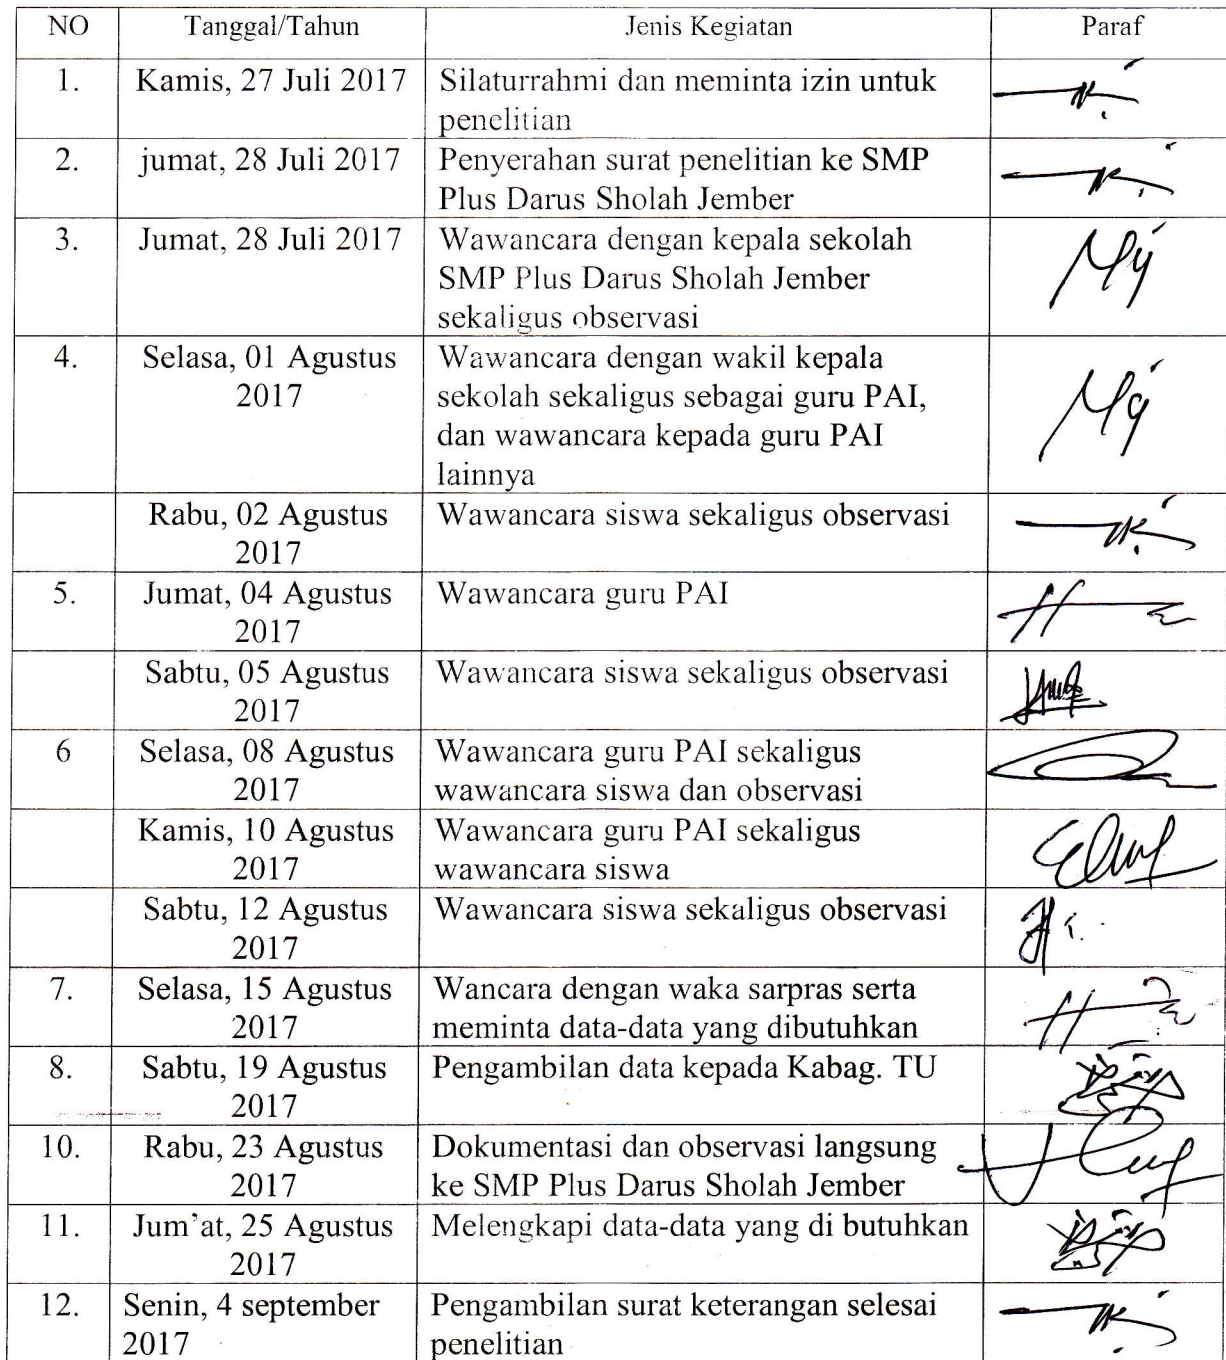 NO Tanggal/Tahun Jenis Kegiatan Paraf
1. Kamis, 27 Juli 2017 Silaturrahmi dan meminta izin untuk
penelitian
2. jumat, 28 Juli 2017 Penyerahan surat penelitian ke SMP
Plus Darus Sholah Jember
3. Jumat, 28 Juli 2017 Wawancara dengan kepala sekolah
SMP Plus Darus Sholah Jember
sekaligus observasi
4. Selasa, 01 Agustus Wawancara dengan wakil kepala
2017 sekolah sekaligus sebagai guru PAI,
dan wawancara kepada guru PAI
lainnya
Rabu, 02 Agustus Wawancara siswa sekaligus observasi
2017
5. Jumat, 04 Agustus Wawancara guru PAI
2017
Sabtu, 05 Agustus Wawancara siswa sekaligus observasi
2017
6 Selasa, 08 Agustus Wawancara guru PAI sekaligus
2017 wawancara siswa dan observasi
Kamis, 10 Agustus Wawancara guru PAI sekaligus
2017 wawancara siswa
Sabtu, 12 Agustus Wawancara siswa sekaligus observasi
2017
7. Selasa, 15 Agustus Wancara dengan waka sarpras serta
2017 meminta data-data yang dibutuhkan
8. Sabtu, 19 Agustus Pengambilan data kepada Kabag. TU
2017
10. Rabu, 23 Agustus Dokumentasi dan observasi langsung
2017 ke SMP Plus Darus Sholah Jember
11. Jum'at, 25 Agustus Melengkapi data-data yang di butuhkan
2017
12. Senin, 4 september Pengambilan surat keterangan selesai
2017 penelitian